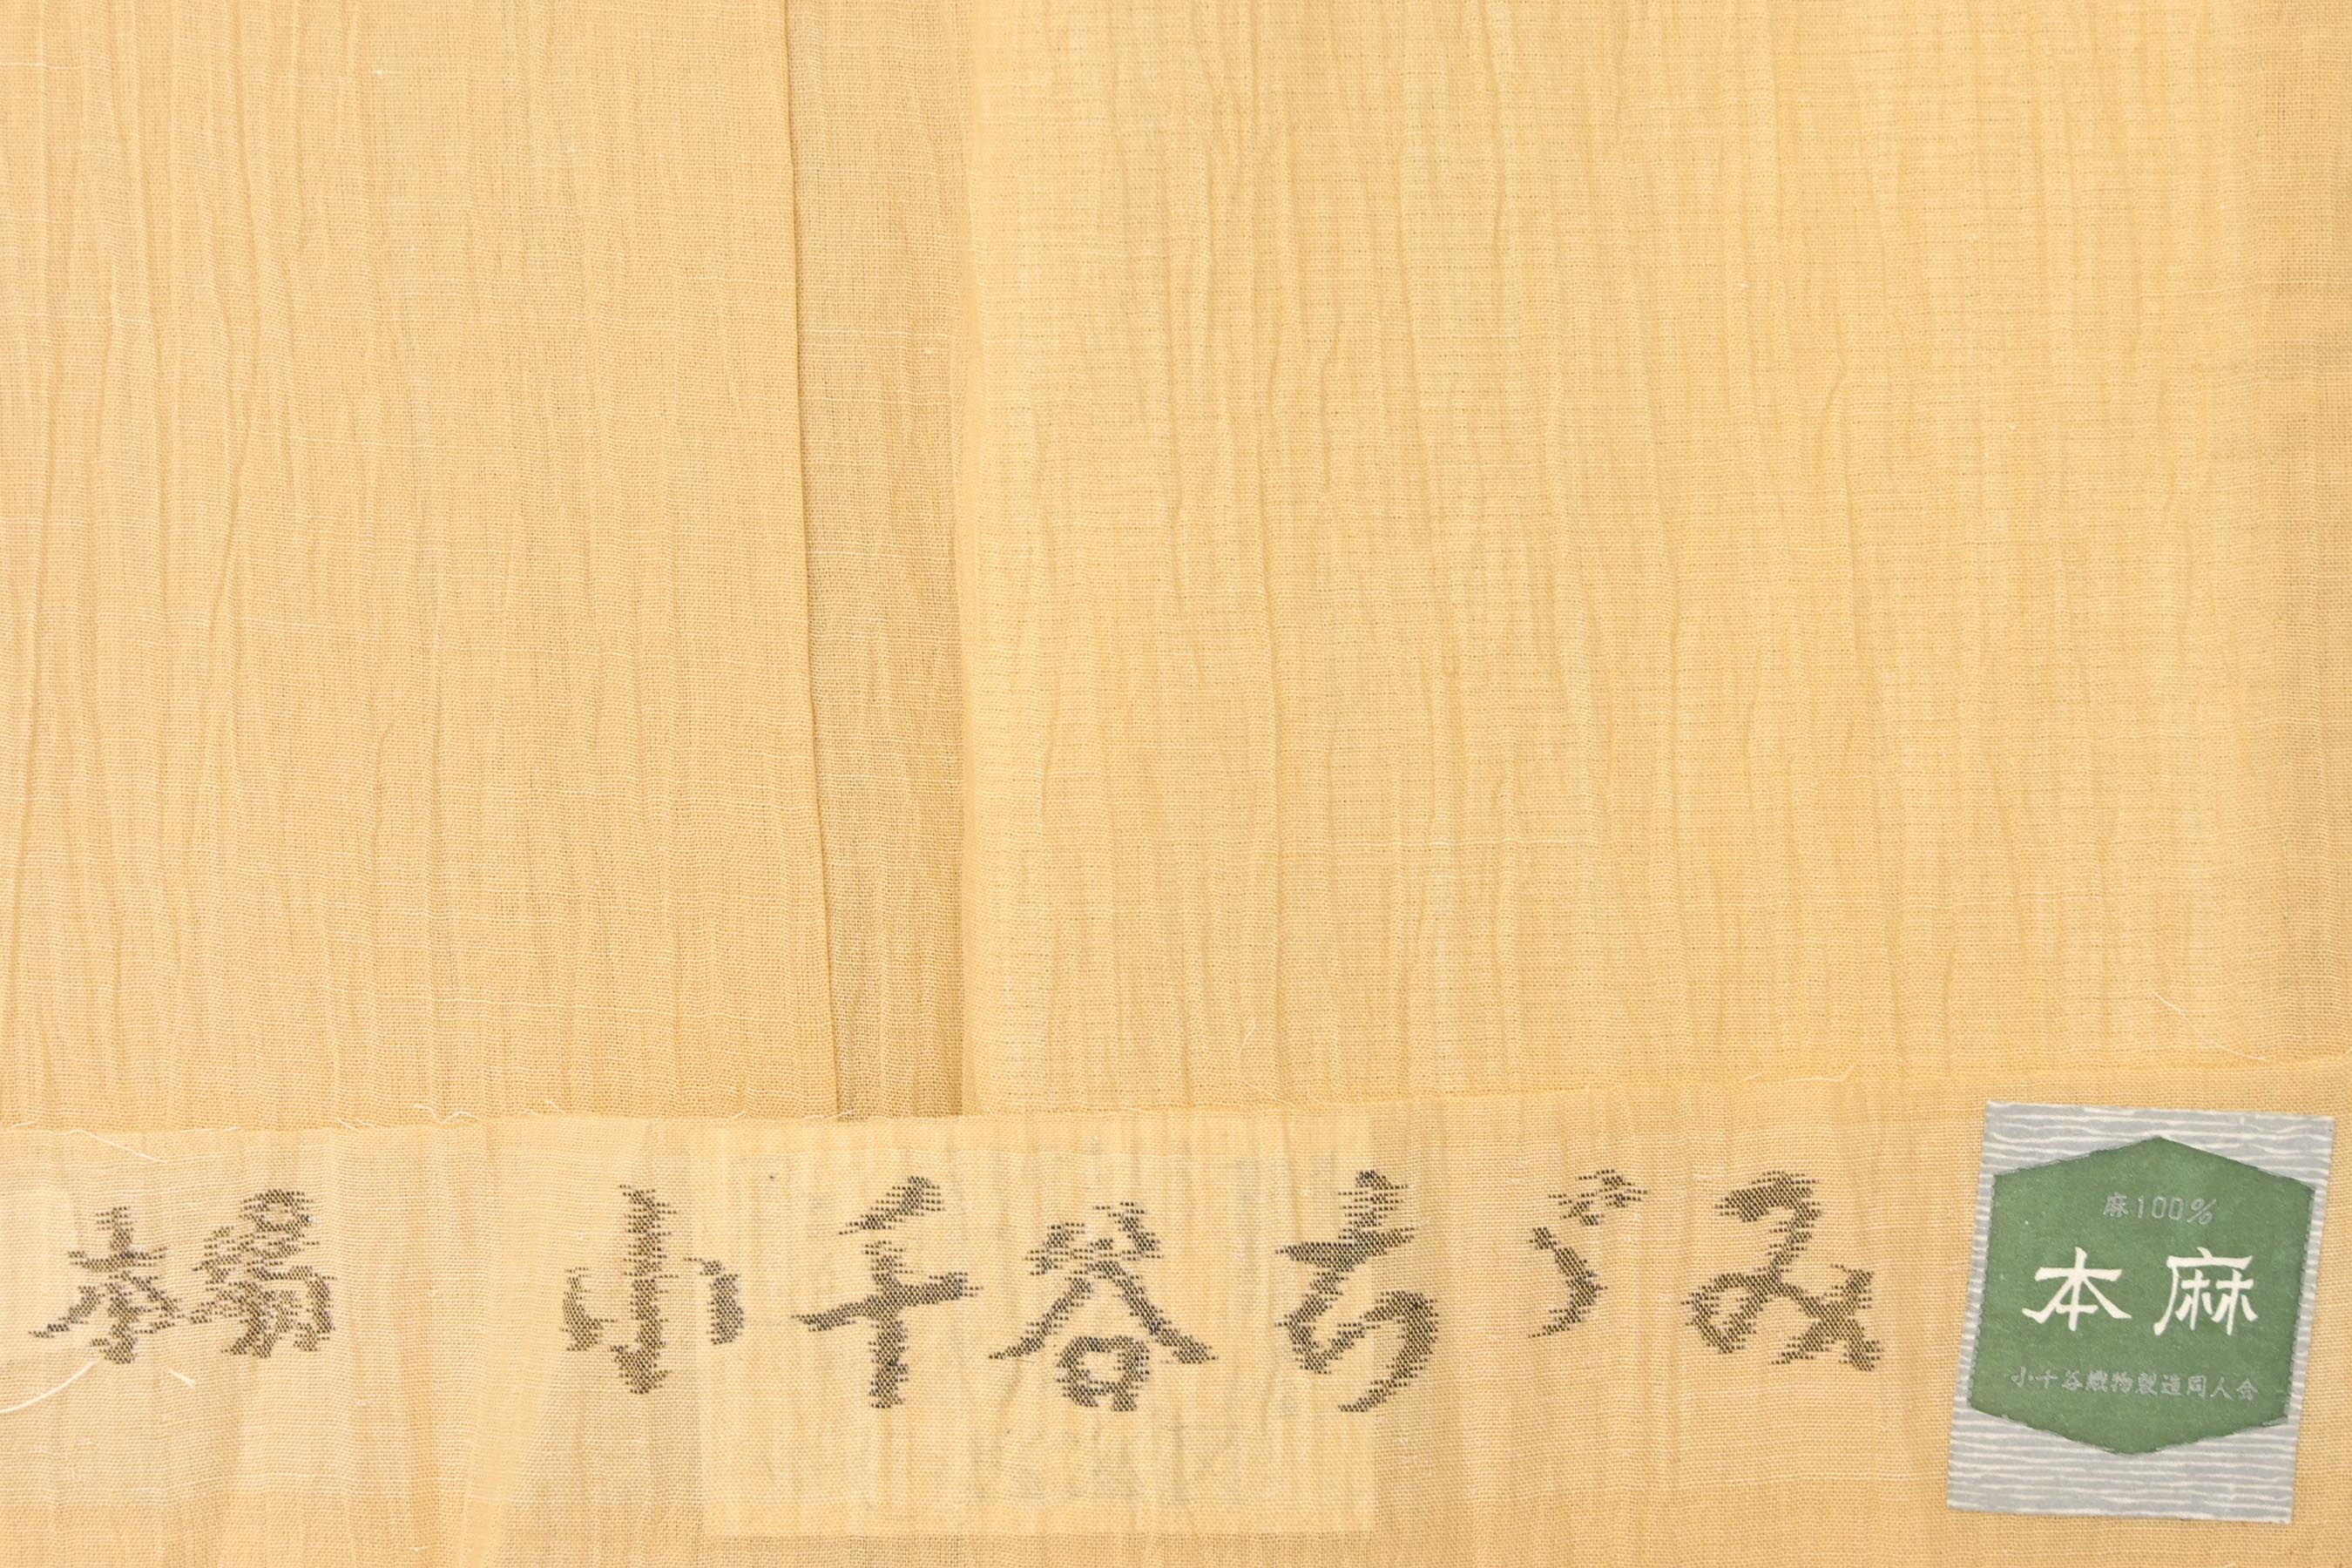 本場 小千谷ちゞみ
麻100%
本麻
小千谷織物製造同人会